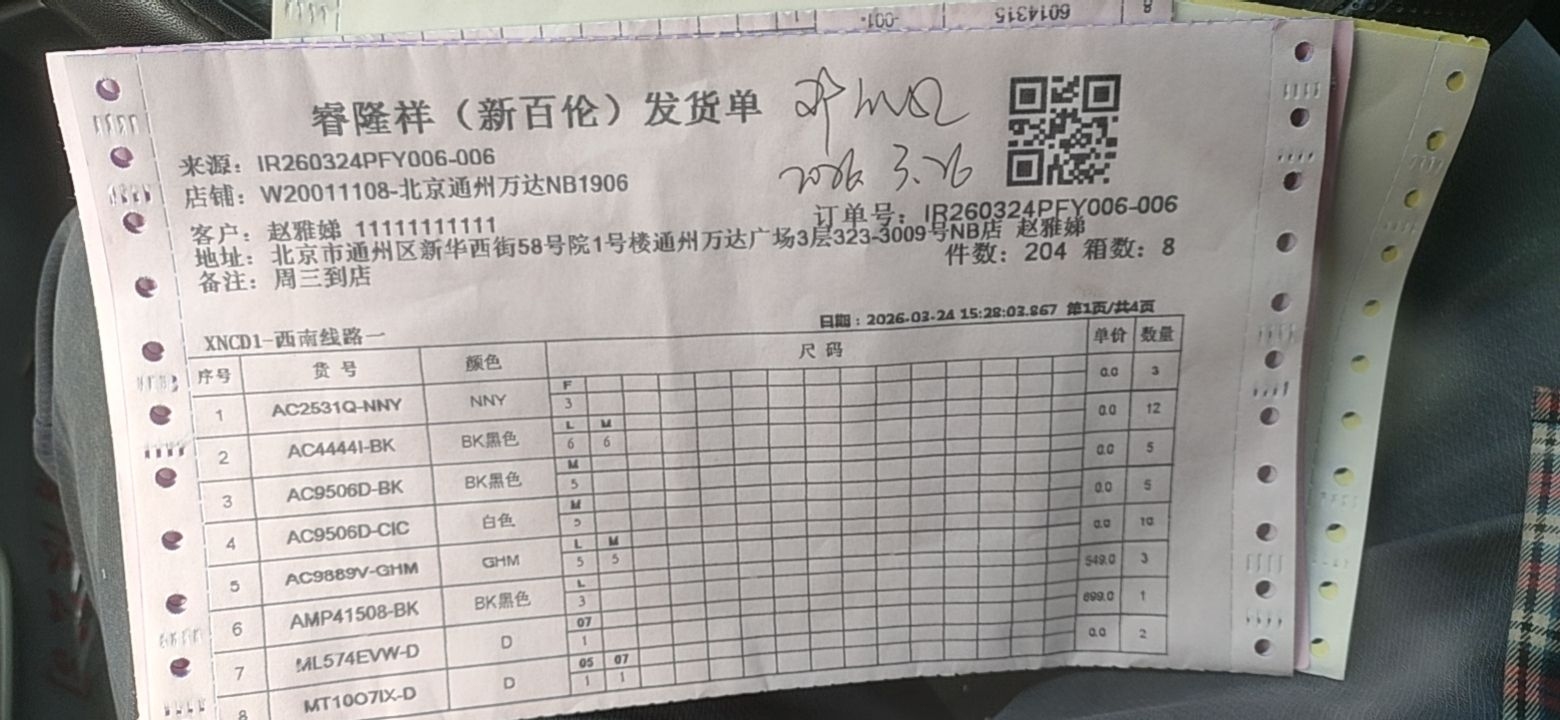 6014315 -001-
睿隆祥（新百伦）发货单
2026 3.26
来源：IR260324PFY006-006
店铺：W20011108-北京通州万达NB1906
订单号：IR260324PFY006-006
客户：赵雅娣 11111111111
地址：北京市通州区新华西街58号院1号楼通州万达广场3层323-3009号NB店 赵雅娣
件数：204 箱数：8
备注：周三到店
日期：2026-03-24 15:28:03.867 第1页/共4页
XNCD1-西南线路一
序号 货号 颜色 尺码 单价 数量
1 AC2531Q-NNY NNY F 3 0.0 3
2 AC4444I-BK BK黑色 L 6 M 6 0.0 12
3 AC9506D-BK BK黑色 M 5 0.0 5
4 AC9506D-CIC 白色 M 5 0.0 5
5 AC9889V-GHM GHM L 5 M 5 0.0 10
6 AMP41508-BK BK黑色 L 3 549.0 3
7 ML574EVW-D D 07 1 899.0 1
8 MT10O7IX-D D 05 1 07 1 0.0 2